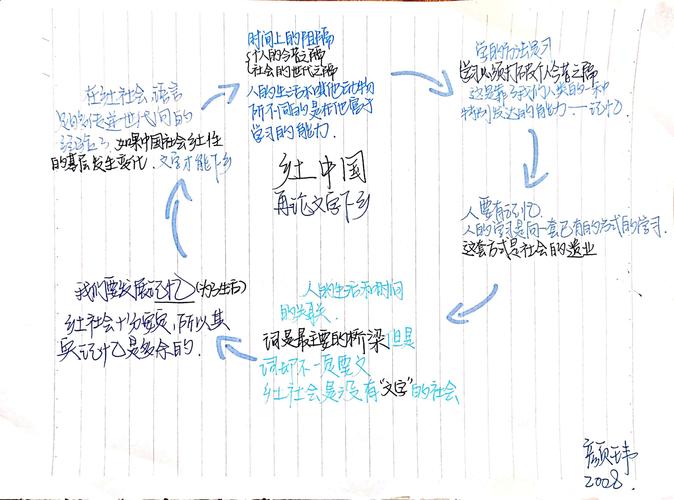 时间上的阻隔
个人的今昔之隔
社会的世代之隔
人的生活和其他动物
所不同的是在他富于
学习的能力.
学的方法是习
学必须打破个人今昔之隔
这是靠了我们人类的一种
特别发达的能力——记忆
人要有记忆.
人的学习是向一套已有的方式的学习.
这套方式是社会的遗业
人的生活和时间
的关联.
词是最主要的桥梁 但是
词却不一定要文
乡土社会是没有“文字”的社会
我们要发展记忆(为了生活)
乡土社会十分安定,所以其
实记忆是多余的.
在乡土社会,语言
足够传递世代间的
经验了,如果中国社会乡土性
的基层发生变化.文字才能下乡
乡土中国
再论文字下乡
2028